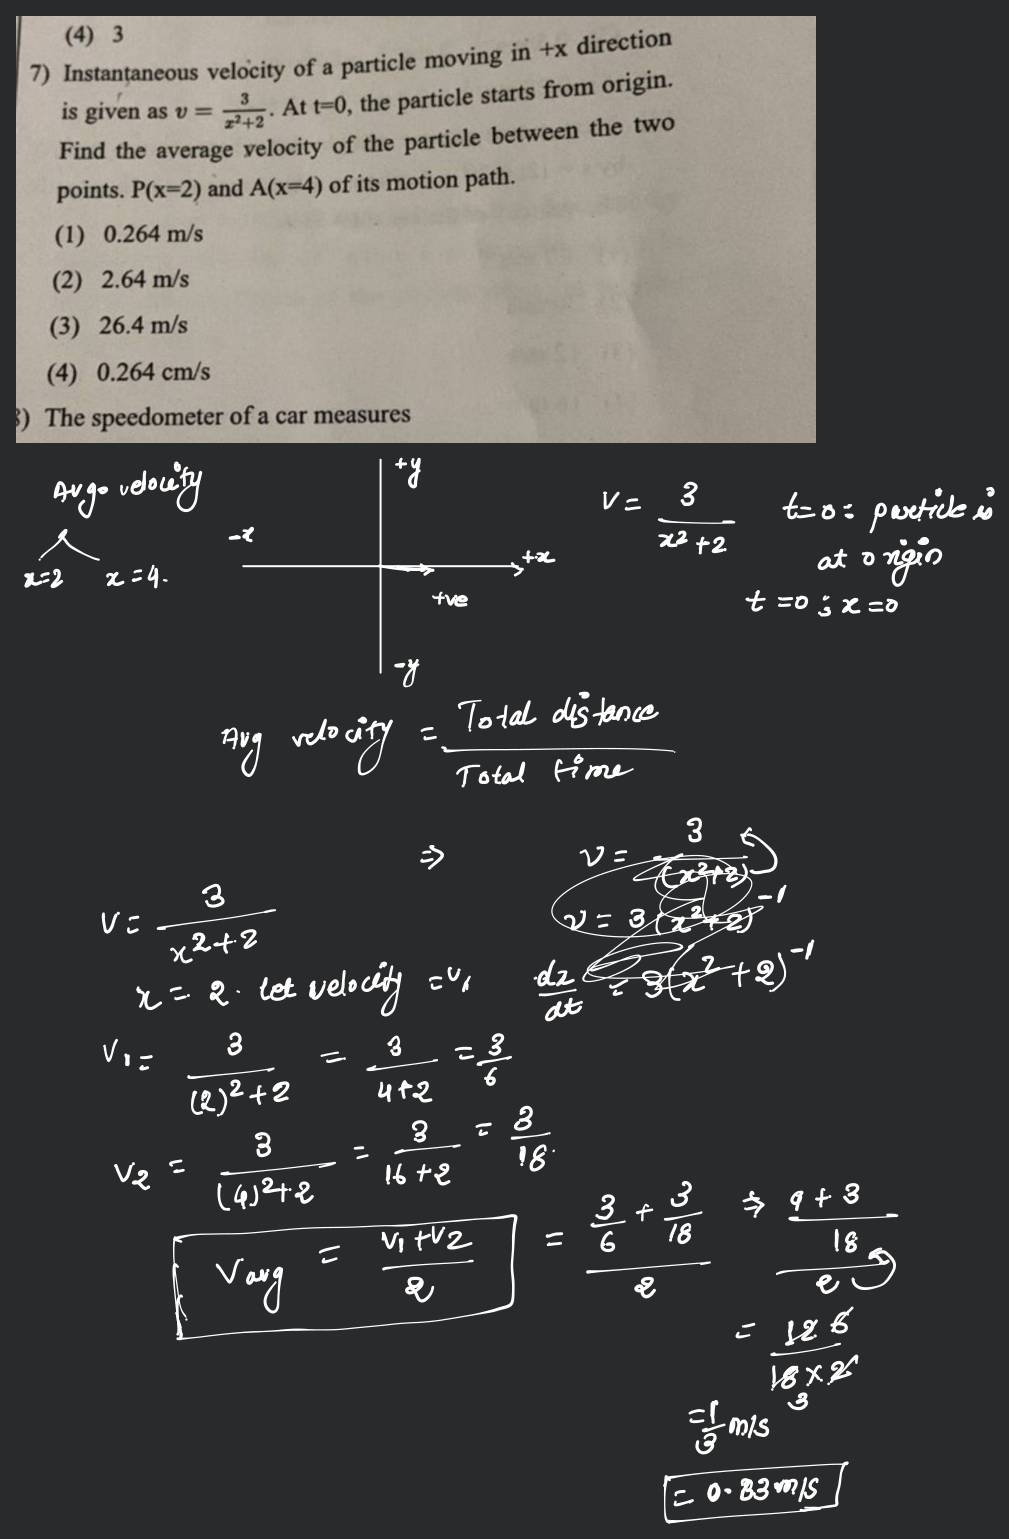 (4) 3
7) Instantaneous velocity of a particle moving in +x direction
is given as v = 3/(x²+2). At t=0, the particle starts from origin.
Find the average velocity of the particle between the two
points. P(x=2) and A(x=4) of its motion path.
(1) 0.264 m/s
(2) 2.64 m/s
(3) 26.4 m/s
(4) 0.264 cm/s
) The speedometer of a car measures
Avg. velocity
x=2 x=4.
+y
-x
+x
+ve
-y
v = 3/(x²+2)
t=0: particle is
at origin
t=0; x=0
Avg velocity = Total distance / Total time
⇒ v = 3/(x²+2)
v = 3(x²+2)⁻¹
dx/dt = 3(x²+2)⁻¹
v = 3/(x²+2)
x = 2. let velocity = v₁
v₁ = 3/((2)²+2) = 3/(4+2) = 3/6
v₂ = 3/((4)²+2) = 3/(16+2) = 3/18.
Vavg = (v₁+v₂)/2 = (3/6 + 3/18)/2 ⇒ ((9+3)/18)/2
= 12 6 / 18×2 3
= 1/3 m/s
= 0.33 m/s